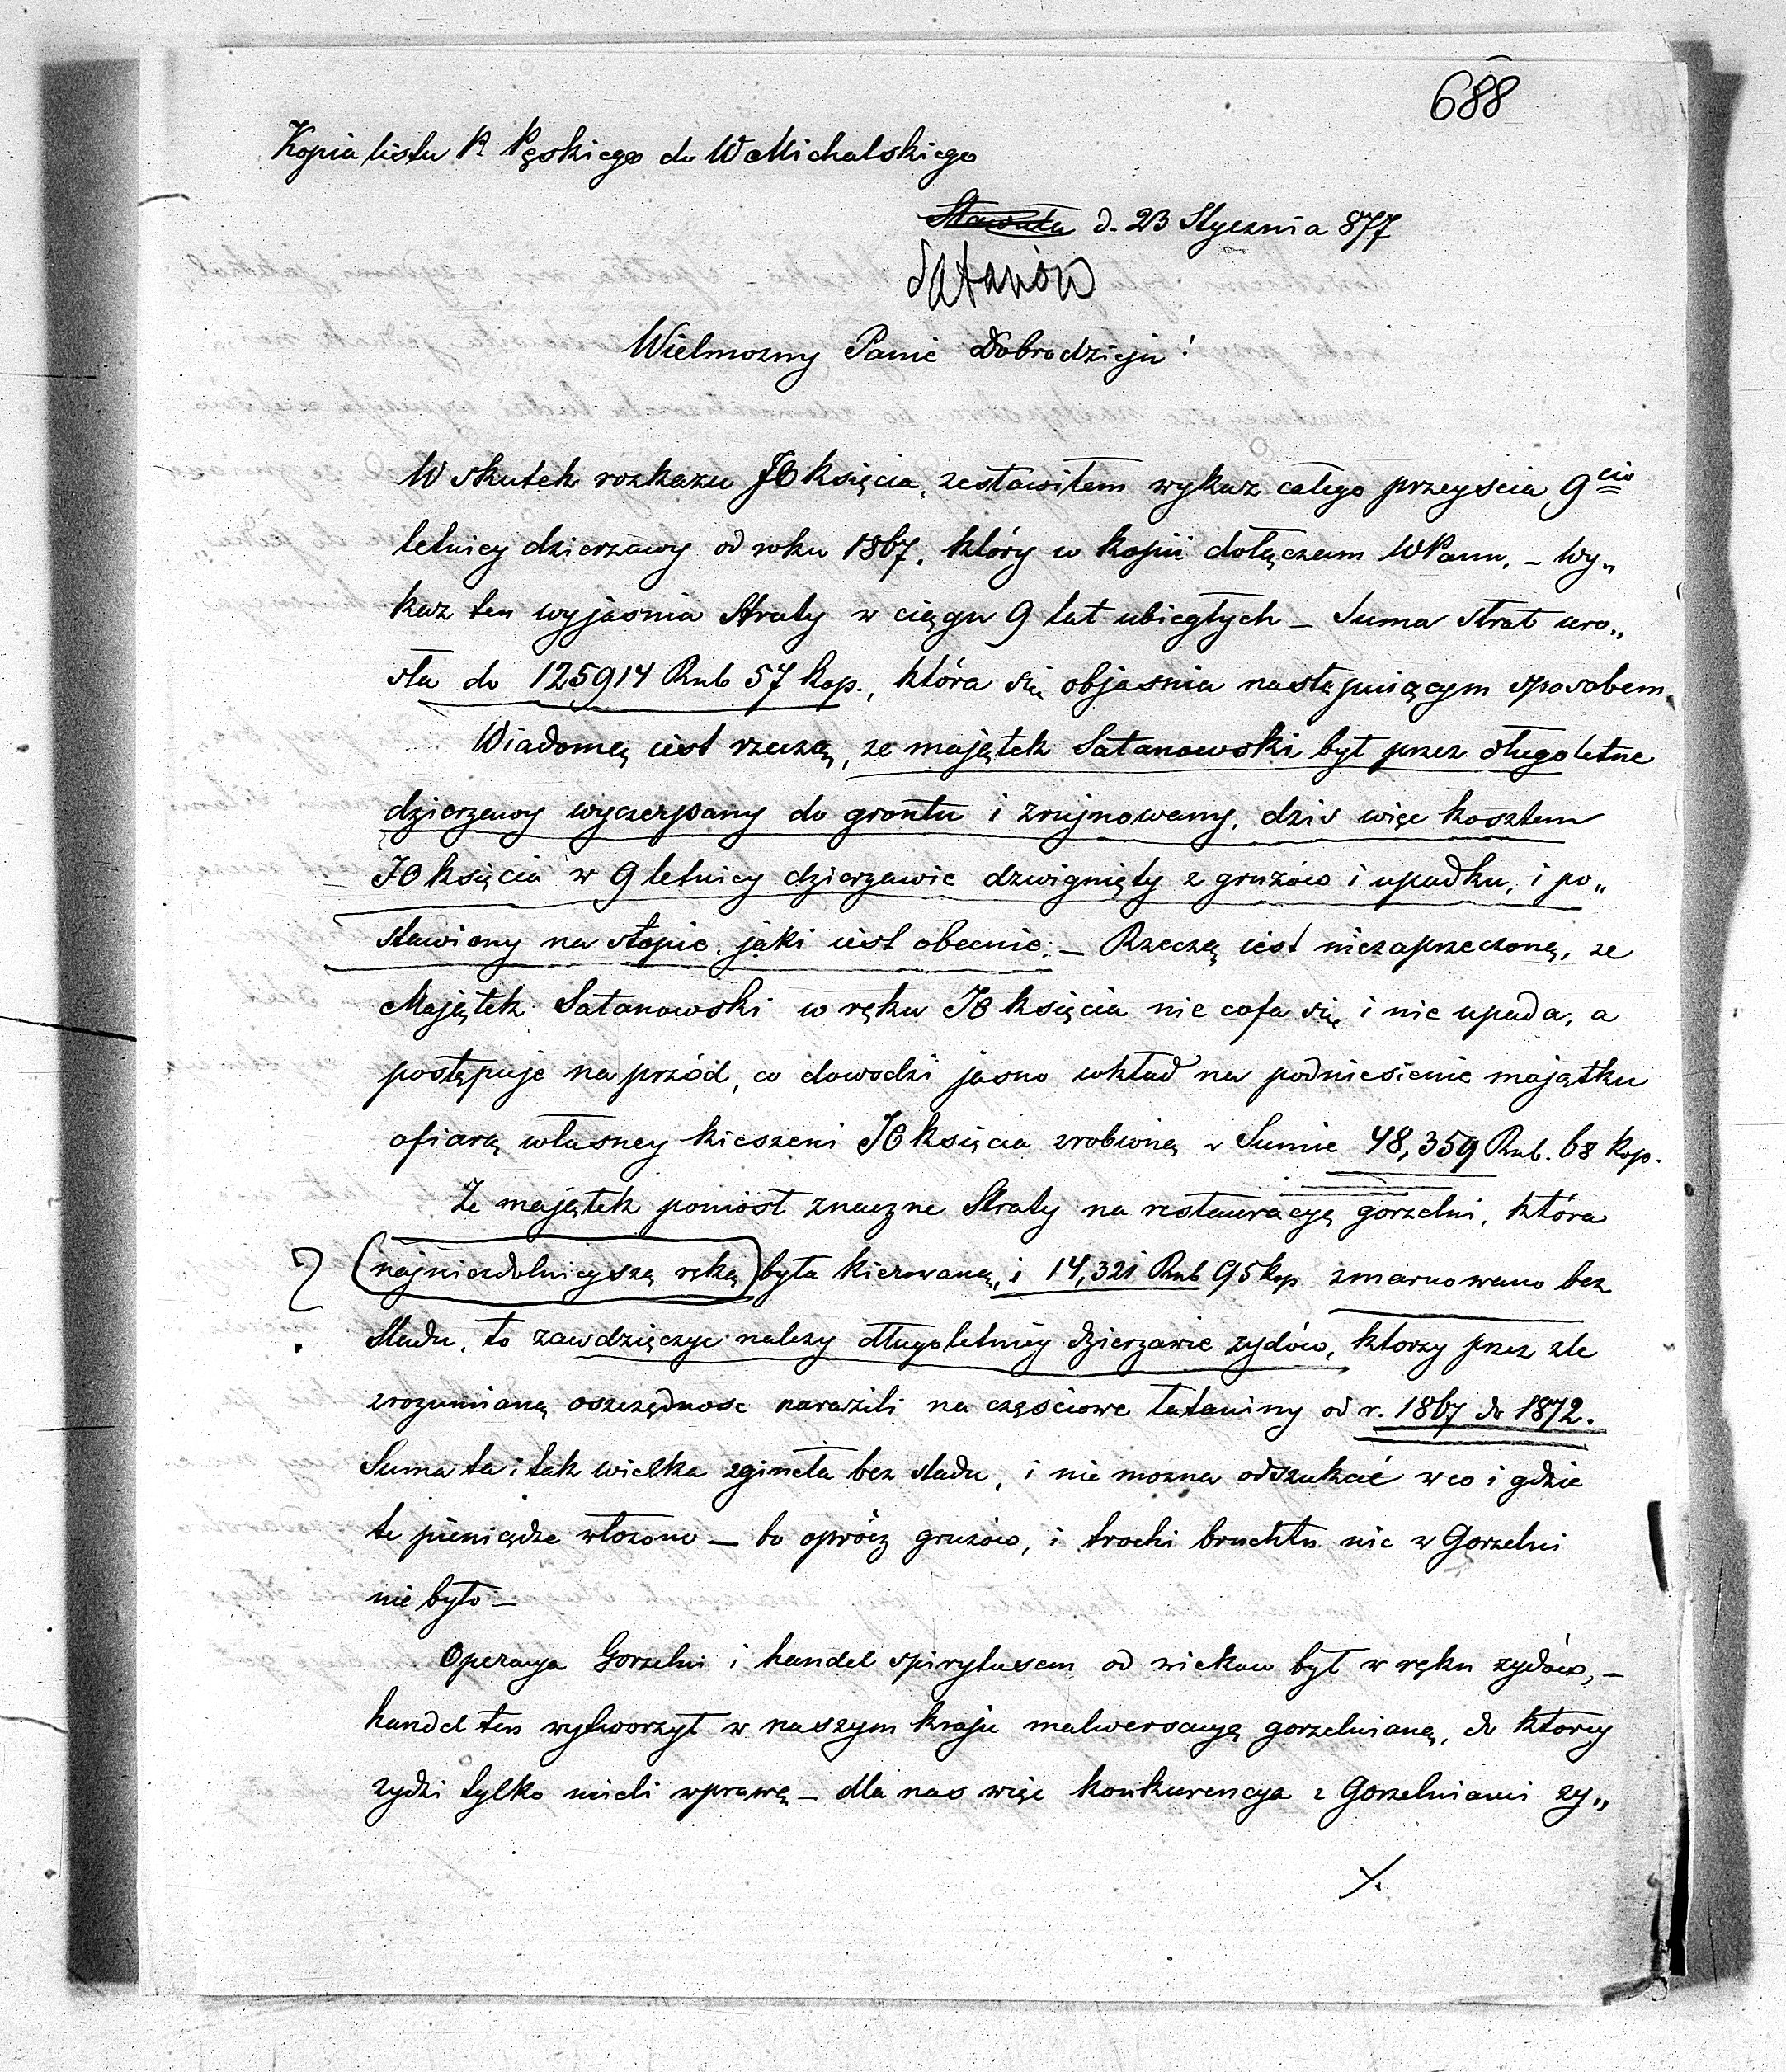 688
Kopia listu P. Pęskiego do W Michalskiego
d. 23 Stycznia 877
Satanów
Wielmozny Panie Dobrodzieju!
W skutek rozkazu JO księcia, zestawiłem wykaz całego przeyscia 9cio
letniey dzierzawy od roku 1867. który w kopii dołączam WPanu. – Wy„
kaz ten wyjasnia Straty w ciągu 9 lat ubiegłych – Suma strat uro„
sła do 125914 Rub 57 kop., która się objasnia następuiącym sposobem.
Wiadomą iest rzeczą, ze majątek Satanowski był przez długoletne
dzierzawy wyczerpany do grontu i zrujnowany, dzis więc kosztem
JO księcia w 9 letniey dzierzawie dzwignięty z gruzów i upadku, i po„
stawiony na stopie jaki iest obecnie. – Rzeczą iest niezaprzeczoną, ze
Majątek Satanowski w ręku JO księcia nie cofa się i nie upada, a
postępuje na przód, co dowodzi jasno wkład na podniesienie majątku
ofiarą własney kieszeni JO księcia zrobioną w Sumie 48,359 Rub. 68 kop.
Ze majątek poniosł znaczne Straty na restauracyą gorzelni, która
? (najniezdolnieyszą ręką) była kierowaną, i 14,321 Rub 95 kop zmarnowano bez
sladu, to zawdzięczyc nalezy długoletniey dzierzawie zydów, ktorzy przez zle
zrozumianą oszczędnosc narazili na częściowe łataniny od r. 1867 do 1872.
Suma ta i tak wielka zgineła bez sladu, i nie mozna odszukać w co i gdzie
te pieniądze włozono – bo oprócz gruzów, i trochi bruchtu nic w Gorzelni
nie było –
Operacya Gorzelni i handel spirytusem od wiekow był w ręku zydów, –
handel ten wytworzył w naszym kraju malwersacyą gorzelnianą, do ktorey
zydzi tylko mieli wprawę – dla nas więc konkurencya z Gorzelniami zy„